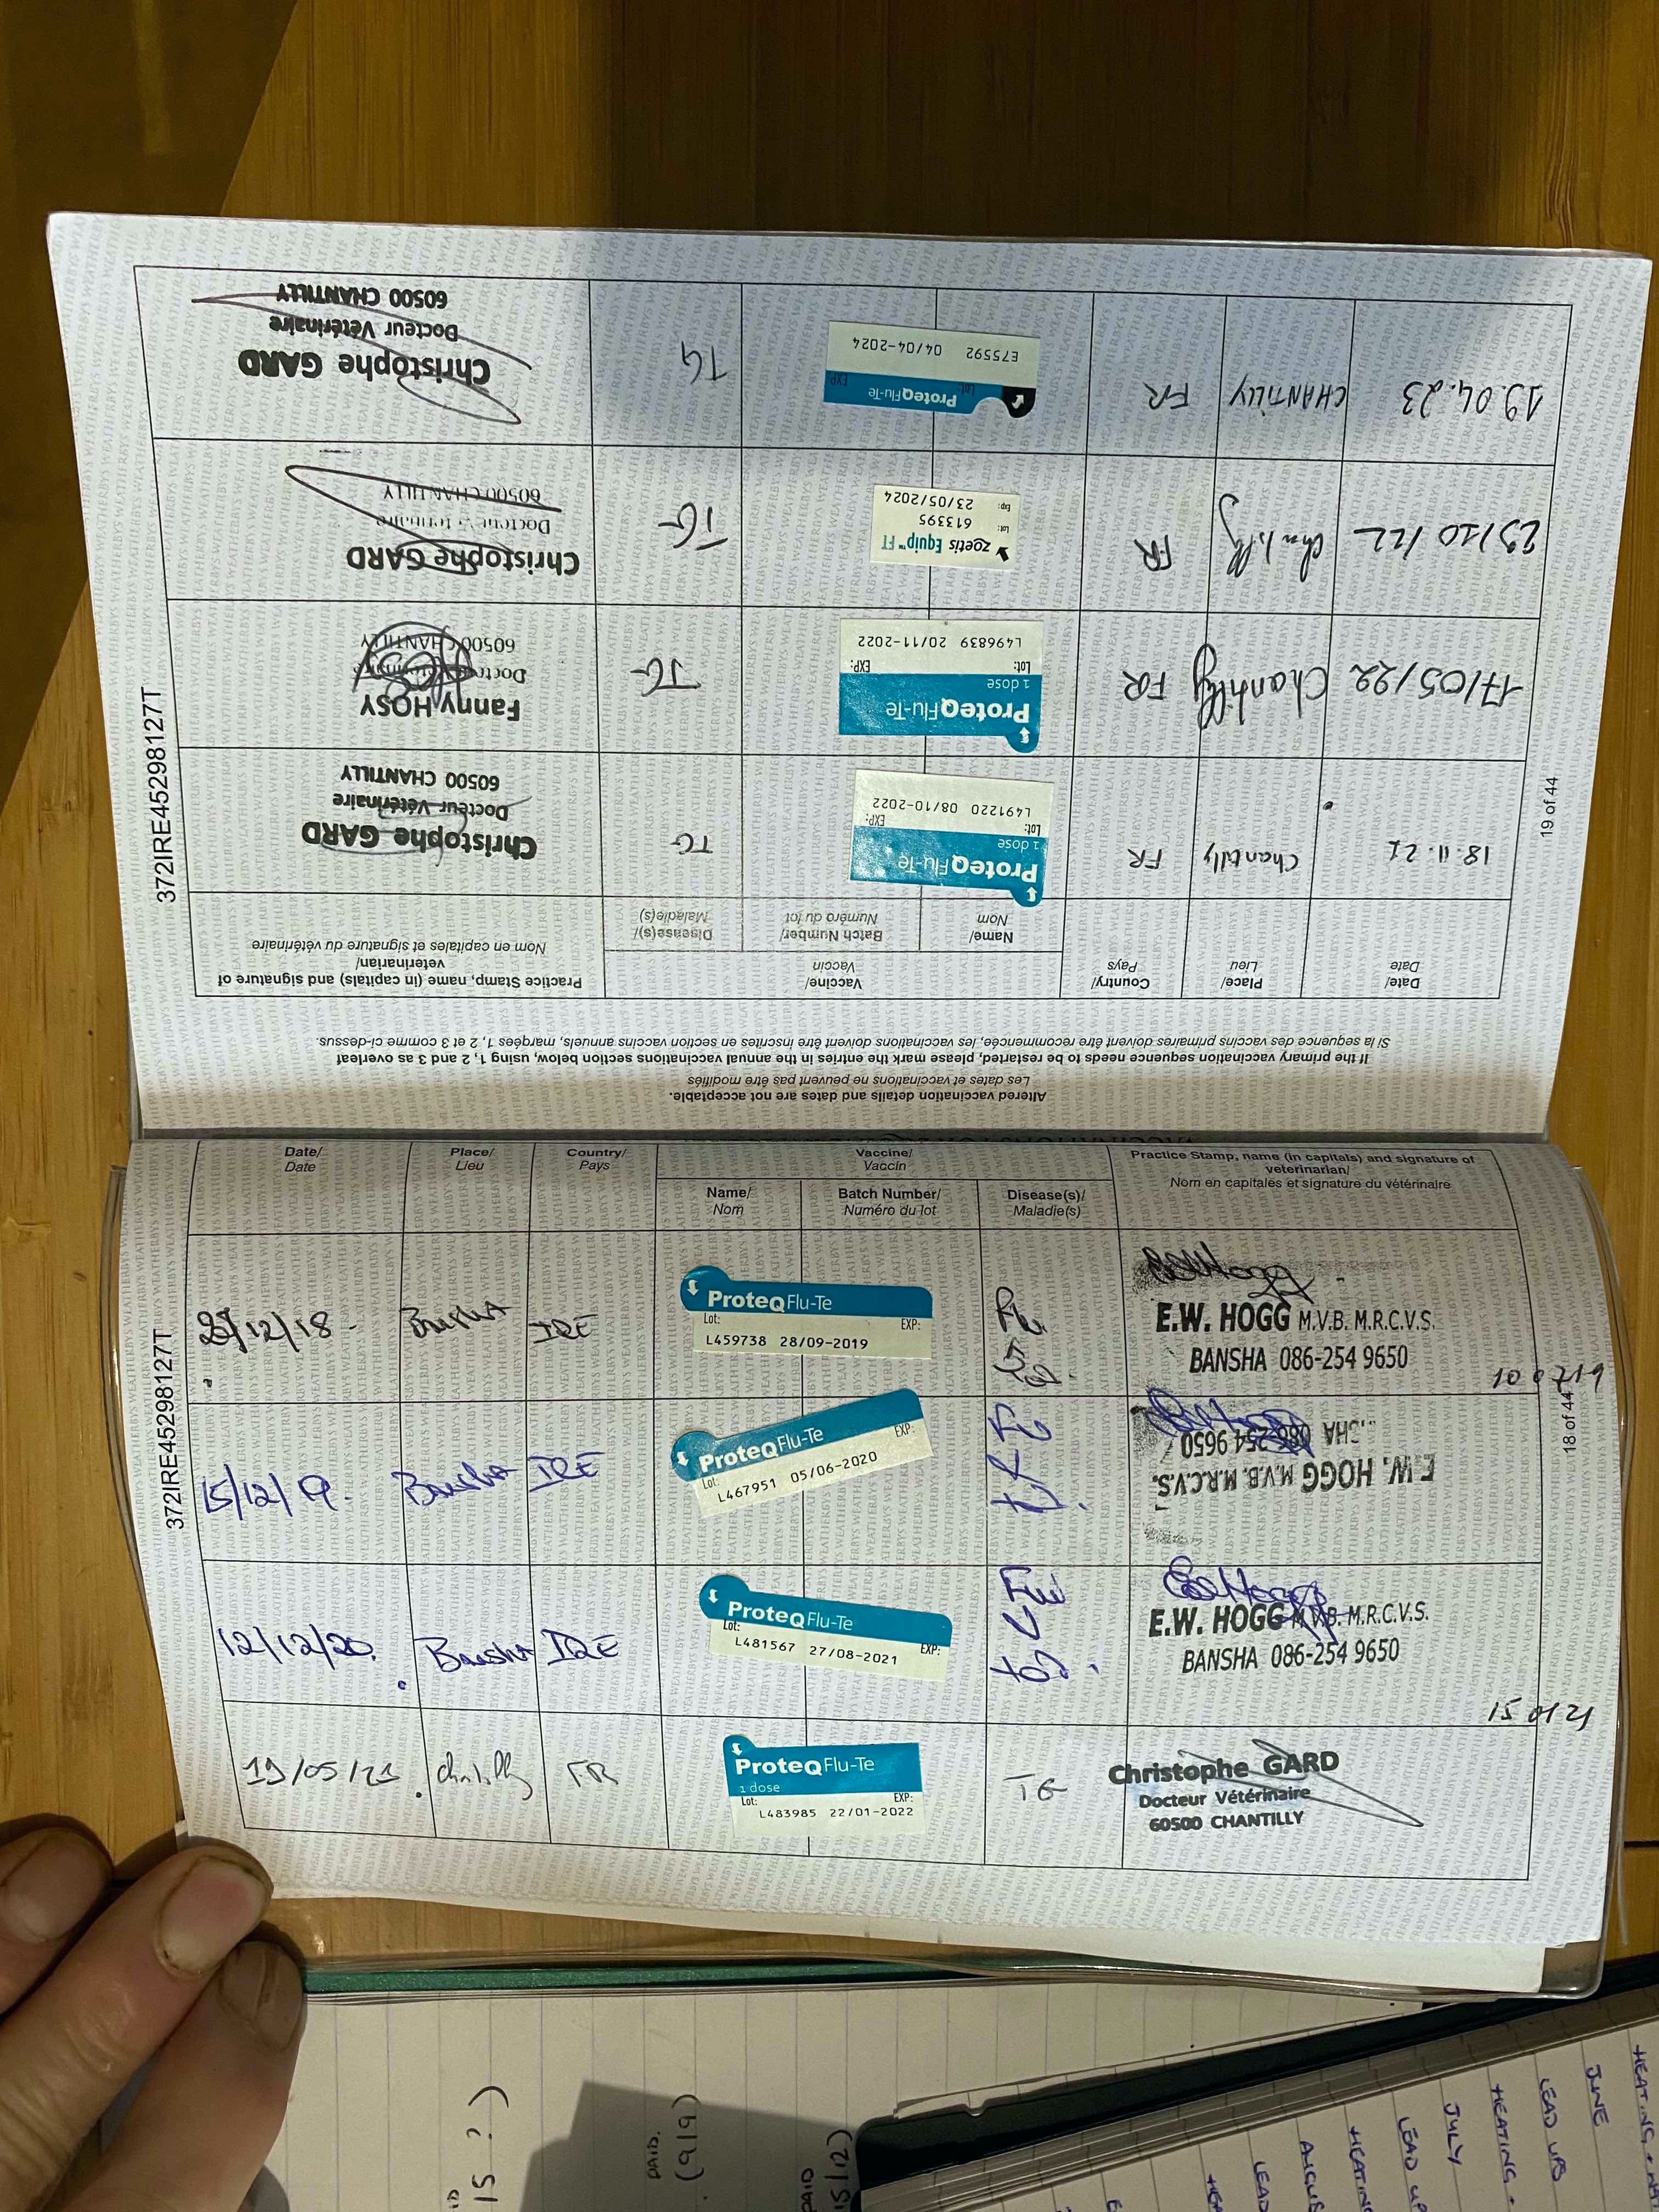 372IRE45298127T
18 of 44
Date/ Place/ Country/ Vaccine/ Practice Stamp, name (in capitals) and signature of
Date Lieu Pays Vaccin veterinarian/
Nom en capitales et signature du vétérinaire
Name/ Batch Number/ Disease(s)/
Nom Numéro du lot Maladie(s)
/12/18 Bansha IRE
ProteqFlu-Te
Lot: EXP:
L459738 28/09-2019
E.W. HOGG M.V.B. M.R.C.V.S.
BANSHA 086-254 9650
100719
15/12/19. Bansha IRE
ProteqFlu-Te
Lot: EXP:
L467951 05/06-2020
E.W. HOGG M.V.B. M.R.C.V.S.
086-254 9650
12/12/20. Bansha IRE
ProteqFlu-Te
Lot: EXP:
L481567 27/08-2021
Flu
E.W. HOGG M.V.B. M.R.C.V.S.
BANSHA 086-254 9650
19/05/21 Chantilly FR
ProteqFlu-Te
1 dose
Lot: EXP:
L483985 22/01-2022
TG
Christophe GARD
Docteur Vétérinaire
60500 CHANTILLY
Altered vaccination details and dates are not acceptable.
Les dates et vaccinations ne peuvent pas être modifiés
If the primary vaccination sequence needs to be restarted, please mark the entries in the annual vaccinations section below, using 1, 2 and 3 as overleaf
Si la sequence des vaccins primaires doivent être recommencée, les vaccinations doivent être inscrites en section vaccins annuels, marqées 1, 2 et 3 comme ci-dessus.
Date/ Place/ Country/ Vaccine/ Practice Stamp, name (in capitals) and signature of
Date Lieu Pays Vaccin veterinarian/
Nom en capitales et signature du vétérinaire
Name/ Batch Number/ Disease(s)/
Nom Numéro du lot Maladie(s)
18.11.21 Chantilly FR
ProteqFlu-Te
1 dose
Lot: EXP:
L491220 08/10-2022
TG
Christophe GARD
Docteur Vétérinaire
60500 CHANTILLY
17/05/22 Chantilly FR
ProteqFlu-Te
1 dose
Lot: EXP:
L496839 20/11-2022
TG
Fanny HOSY
60500 CHANTILLY
/10/22 Chantilly FR
zoetis Equip™ FT
Lot: 613395
Exp: 23/05/2024
TG
Christophe GARD
60500 CHANTILLY
19.04.23 CHANTILLY FR
ProteqFlu-Te
Lot: EXP:
E75592 04/04-2024
TG
Christophe GARD
Docteur Vétérinaire
60500 CHANTILLY
372IRE45298127T
19 of 44
15?)
PAID.
(9/9)
PAID
15/12)
JUNE
LEAD UPS
HEATING +
JULY
LEAD UP
HEATING
LEAD